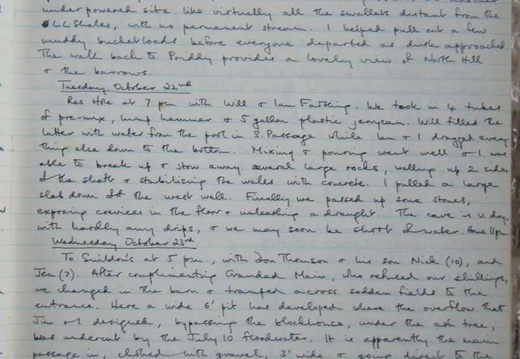 underpowered site like virtually all the swallets distant from the
LLShales, with no permanent stream. I helped pull out a few
muddy bucketloads before everyone departed as dusk approached.
The walk back to Priddy provides a lovely view of North Hill
+ the barrows.
Tuesday October 22nd
Res Hole at 7 pm with Will + Ian. We took in 4 tubes
of pre-mix, lump hammer + 5 gallon plastic jerrycan. Will filled the
latter with water from the pool in S. Passage while Ian + I dragged every
thing else down to the bottom. Mixing + pouring went well + I was
able to break up + stow away several large rocks, walling up 2 sides
of the shaft + stabilising the walls with concrete. I pulled a large
slab down off the west wall. Finally we passed up some stones,
exposing crevices in the floor + unleashing a draught. The cave is v. dry
with hardly any drips, + we may soon be short of water. Home 11pm
Wednesday October 23rd
To Swildon's at 5 pm, with Don Thomson + his son Nick (10), and
Jen (7). After complimenting Grandad Main, who refused our shillings,
we changed in the barn + tramped across sodden fields to the
entrance. Here a wide 6' pit has developed where the overflow that
Jim + I designed, bypassing the blockhouse, under the ash tree,
was undercut by the July 10 floodwater. It is apparently the main
passage in, clothed with gravel, 3' wide + going direct to the